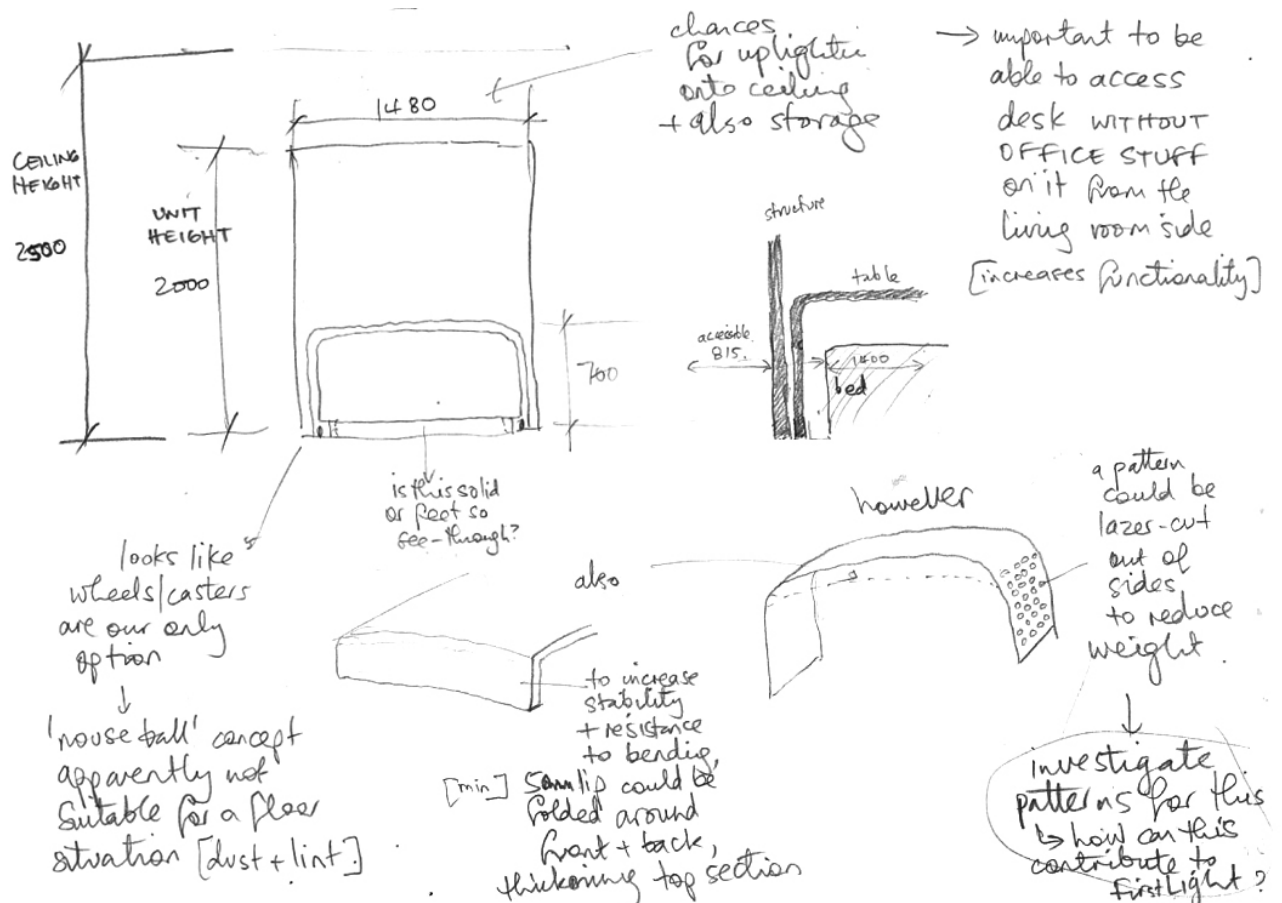 chances
for uplighting
onto ceiling
+ also storage
→ important to be
able to access
desk WITHOUT
OFFICE STUFF
on it from the
living room side
[increases functionality]
1480
CEILING
HEIGHT
2500
UNIT
HEIGHT
2000
700
structure
table
accessible
815.
1400
bed
is this solid
or feet so
see-through?
looks like
wheels/casters
are our only
option
↓
'mouse ball' concept
apparently not
suitable for a floor
situation [dust + lint]
also
to increase
stability
+ resistance
to bending,
[min] 50mm lip could be
folded around
front + back,
thickening top section
however
a pattern
could be
lazer-cut
out of
sides
to reduce
weight.
↓
investigate
patterns for this
↳ how can this
contribute to
firstLight?